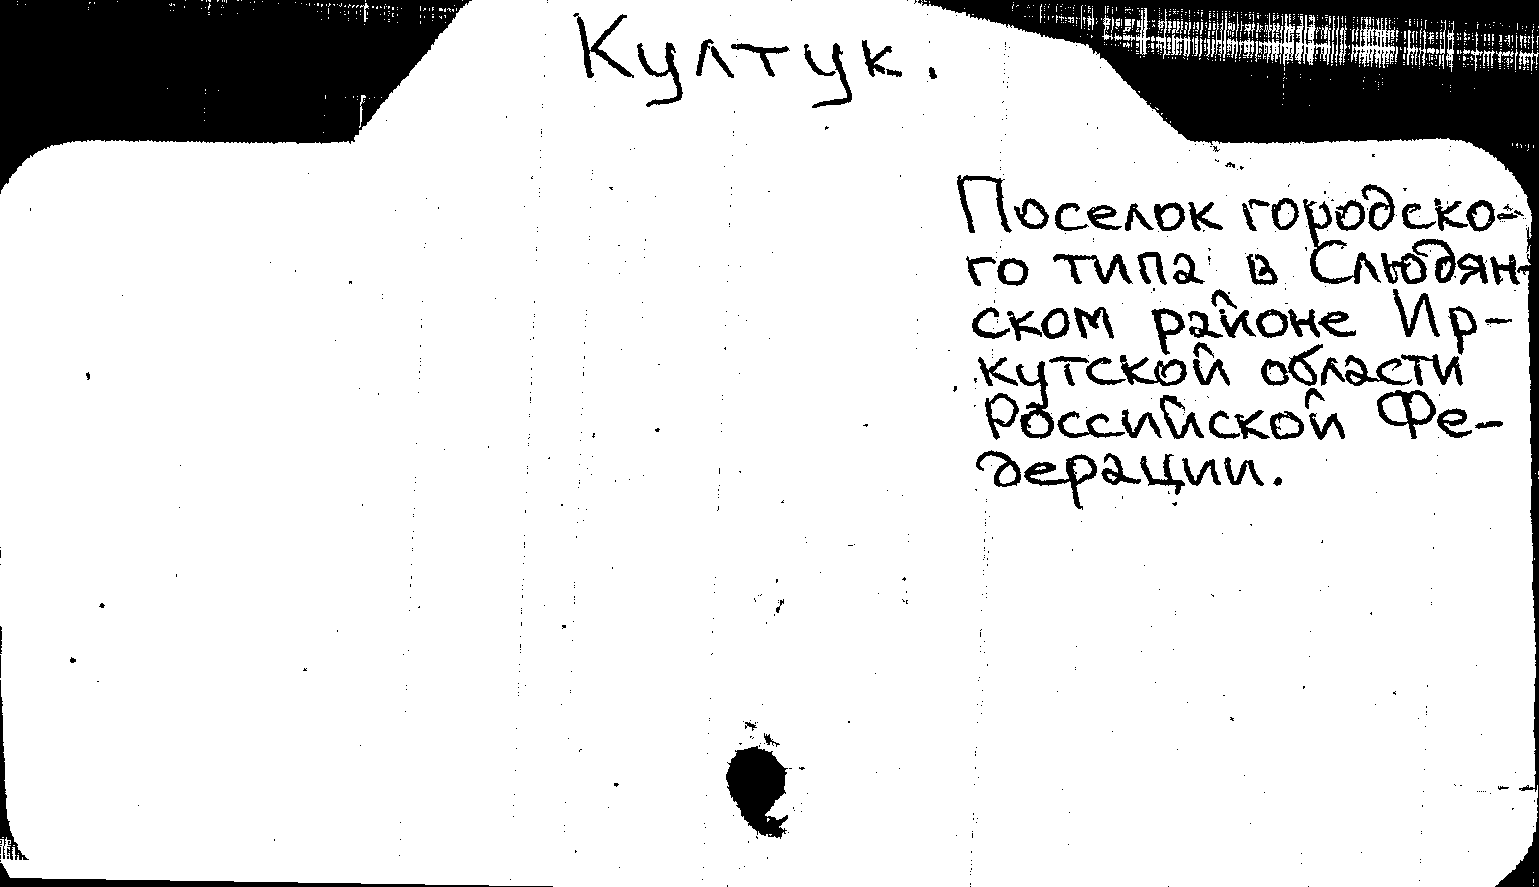 Култук.
Поселок городско-
го типа в Слюдян-
ском районе Ир-
кутской области
Российской Фе-
дерации.